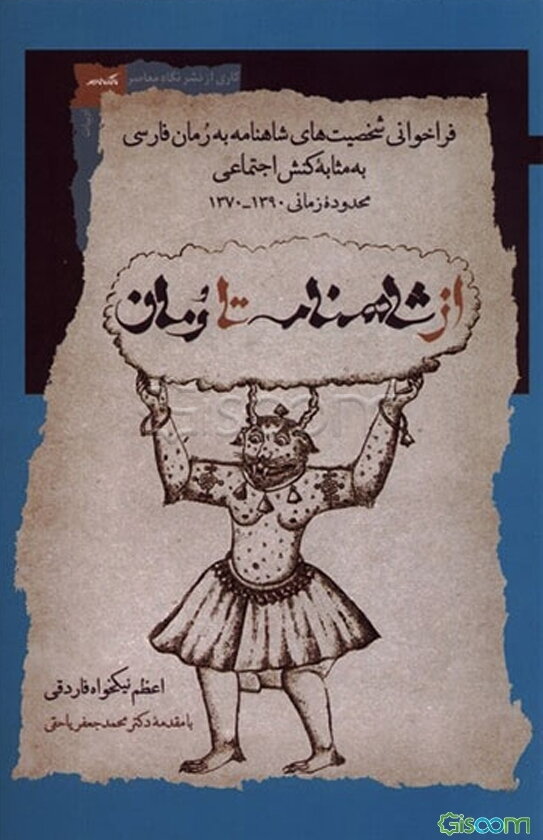 کاری از نشر نگاه معاصر
ادبیات
فراخوانی شخصیت‌های شاهنامه به رُمان فارسی
به مثابهٔ کنش اجتماعی
محدودهٔ زمانی ۱۳۹۰-۱۳۷۰
از شاهنامه تا رُمان
Gisoom
اعظم نیکخواه فاردقی
با مقدمهٔ دکتر محمدجعفر یاحقی
Gisoom